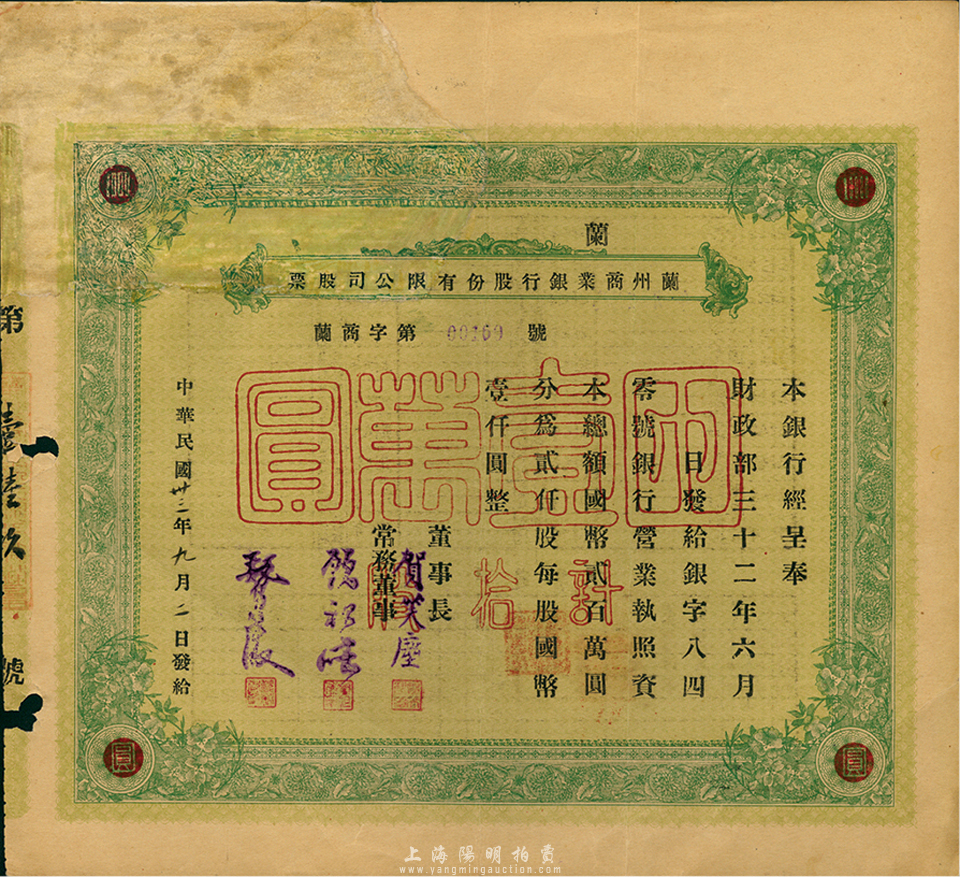 蘭
蘭州商業銀行股份有限公司股票
蘭商字第 00169 號
本銀行經呈奉
財政部三十二年六月
日發給銀字八四
零號銀行營業執照資
本總額國幣貳百萬圓
分為貳仟股每股國幣
壹仟圓整
國幣壹萬圓
計拾股
董事長
賀笑塵
常務董事
中華民國卅二年九月二日發給
第
壹陸玖
號
圓
圓
上海陽明拍賣
www.yangmingauction.com